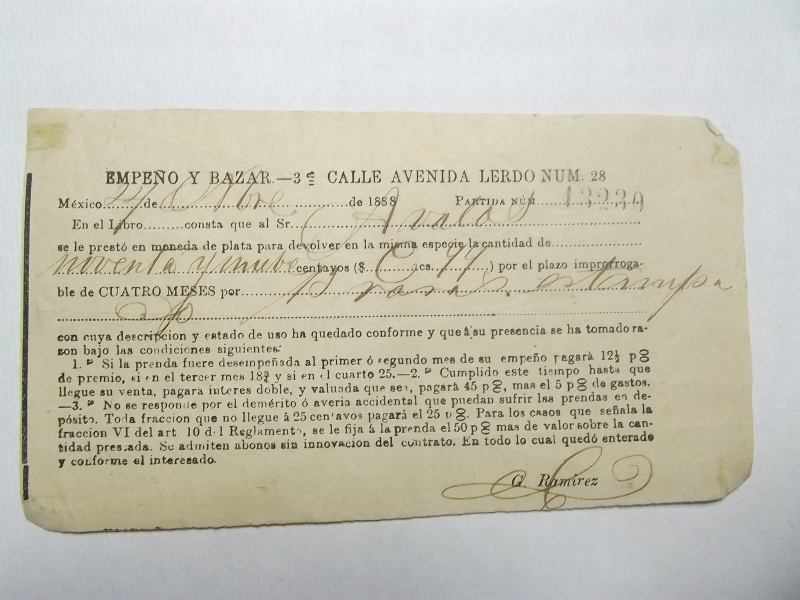 EMPEÑO Y BAZAR.—3ª CALLE AVENIDA LERDO NUM. 28
México 24 de Obre de 1888 PARTIDA NÚM. 13239
En el Libro consta que al Sr. Avalos
se le prestó en moneda de plata para devolver en la misma especie la cantidad de
noventa y nueve centavos ($ cs. 99) por el plazo improrroga-
ble de CUATRO MESES por estampa
con cuya descripcion y estado de uso ha quedado conforme y que á su presencia se ha tomado ra-
zon bajo las condiciones siguientes:
1.ª Si la prenda fuere desempeñada al primer ó segundo mes de su empeño pagará 12½ p%
de premio, si en el tercer mes 18¾ y si en el cuarto 25.—2.ª Cumplido este tiempo hasta que
llegue su venta, pagará interes doble, y valuada que sea, pagará 45 p%, mas el 5 p% de gastos.
—3.ª No se responde por el demérito ó averia accidental que puedan sufrir las prendas en de-
pósito. Toda fraccion que no llegue á 25 centavos pagará el 25 p%. Para los casos que señala la
fraccion VI del art. 10 del Reglamento, se le fija á la prenda el 50 p% mas de valor sobre la can-
tidad prestada. Se admiten abonos sin innovacion del contrato. En todo lo cual quedó enterado
y conforme el interesado.
G. Ramirez